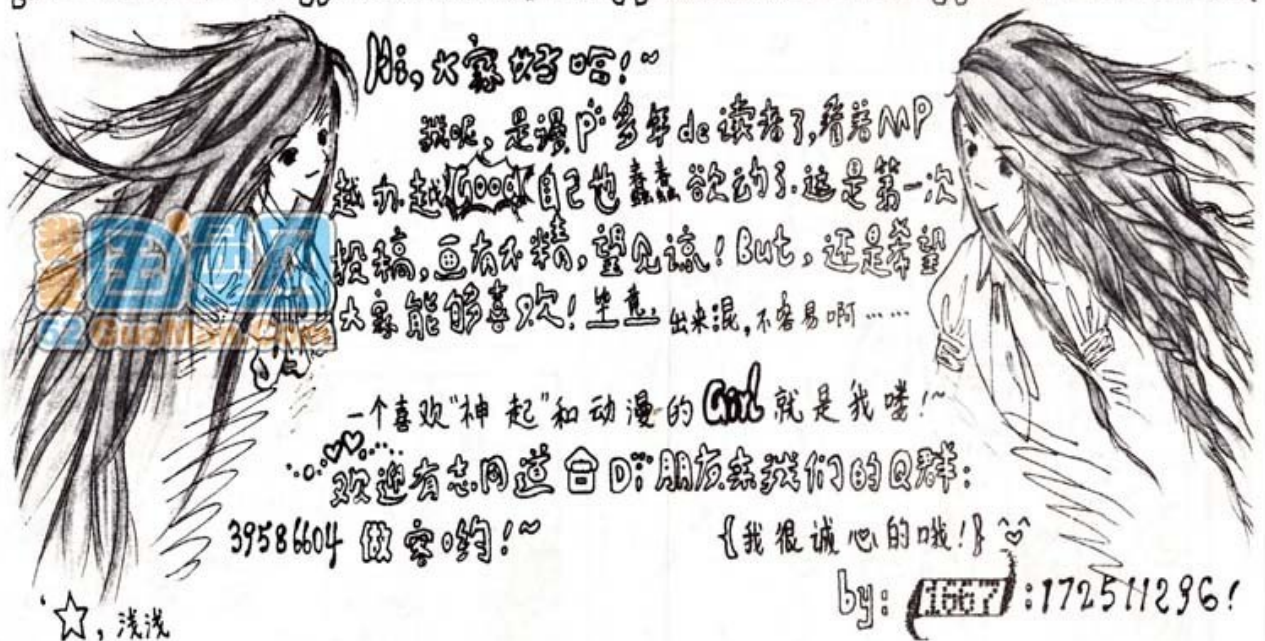 Hi,大家好哈!~
我呢,是漫P多年de读者了,看着MP
越办越Good自己也蠢蠢欲动了.这是第一次
投稿,画有不精,望见谅!But,还是希望
大家能够喜欢!毕竟,出来混,不容易啊……
一个喜欢"神起"和动漫的Girl就是我喽!~
欢迎有志同道合Di朋友来我们的Q群:
39586604 做客哟!~ {我很诚心的哦!}
by: 1667 :172511296!
☆,浅浅
52 GuoMan.Com